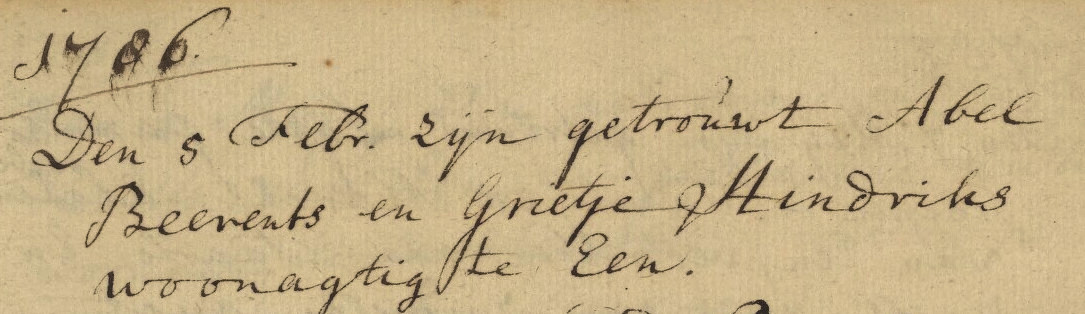 1786.
Den 5 Febr. zijn getrouwt Abel
Beerents en Grietje Hindriks
woonagtig te Een.